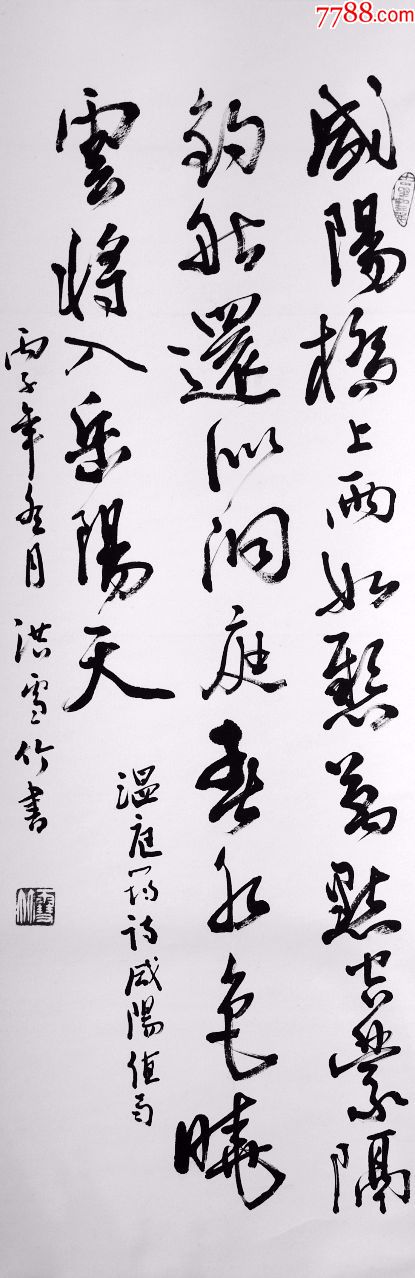 7788.com
咸陽橋上雨如懸萬點空蒙隔
釣船還似洞庭春水色曉
雲將入岳陽天
溫庭筠詩咸陽值雨
丙子年冬月洪雪竹書